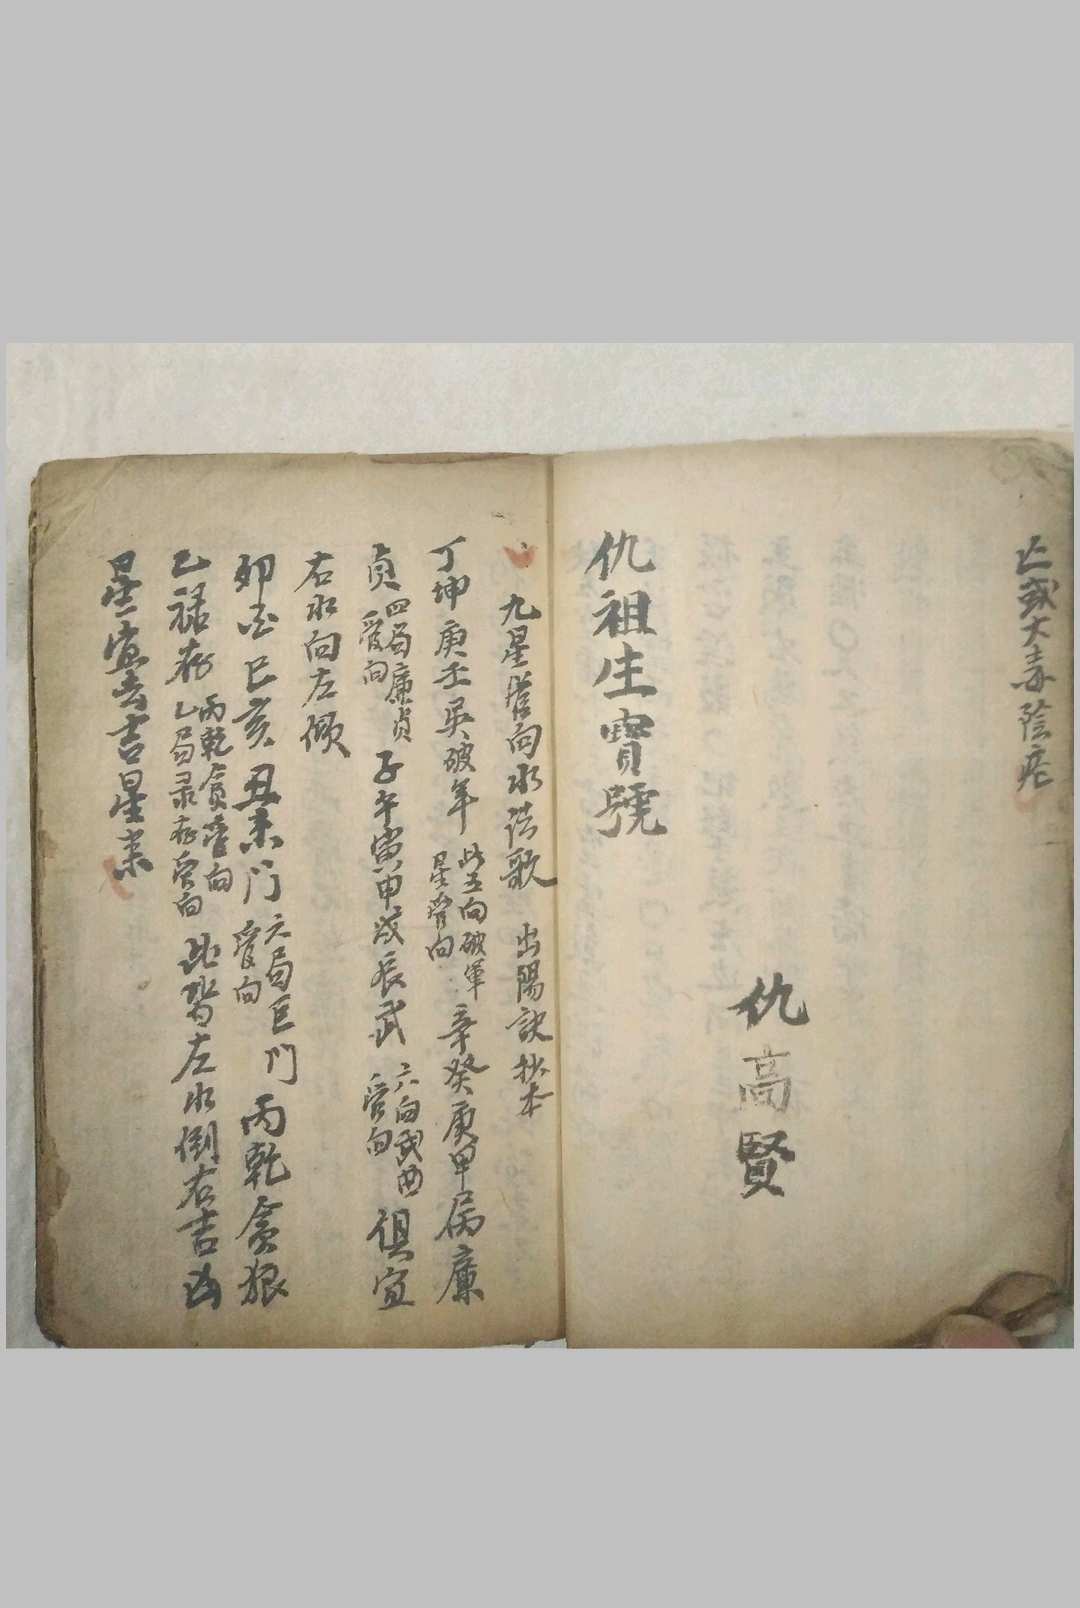 亡或大毒陰疮
仇高賢
仇祖生寶號
九星管向水法歌 出陽訣抄本
丁坤庚壬巽破軍 此五向破軍星管向 辛癸庚甲屬廉
貞 四局廉貞管向 子午寅甲戌辰武 六向武曲管向 俱宜
右水向左傾
卯酉巳亥丑未門 六局巨門管向 丙乾貪狼
乙祿存 丙乾貪管向 乙局录存管向 此皆左水倒右吉凶
星宜去吉星来